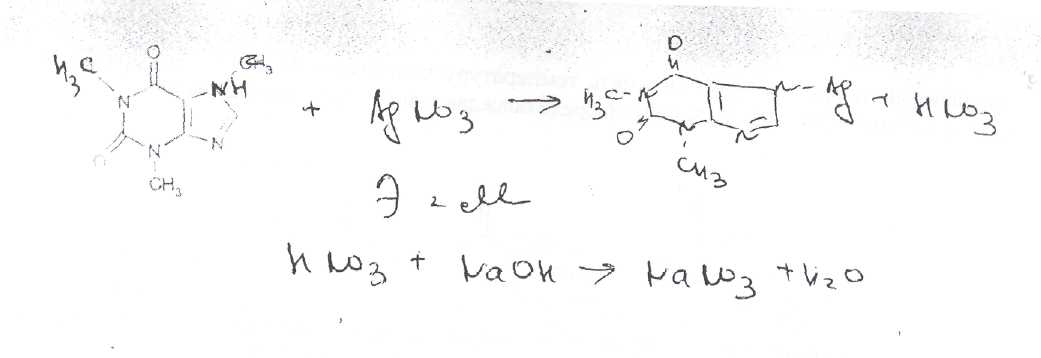 H₃C O CH₃ N NH O N N CH₃ + AgNO₃ → H₃C-N O O N CH₃ N N-Ag + HNO₃
Э = M
HNO₃ + NaOH → NaNO₃ + H₂O